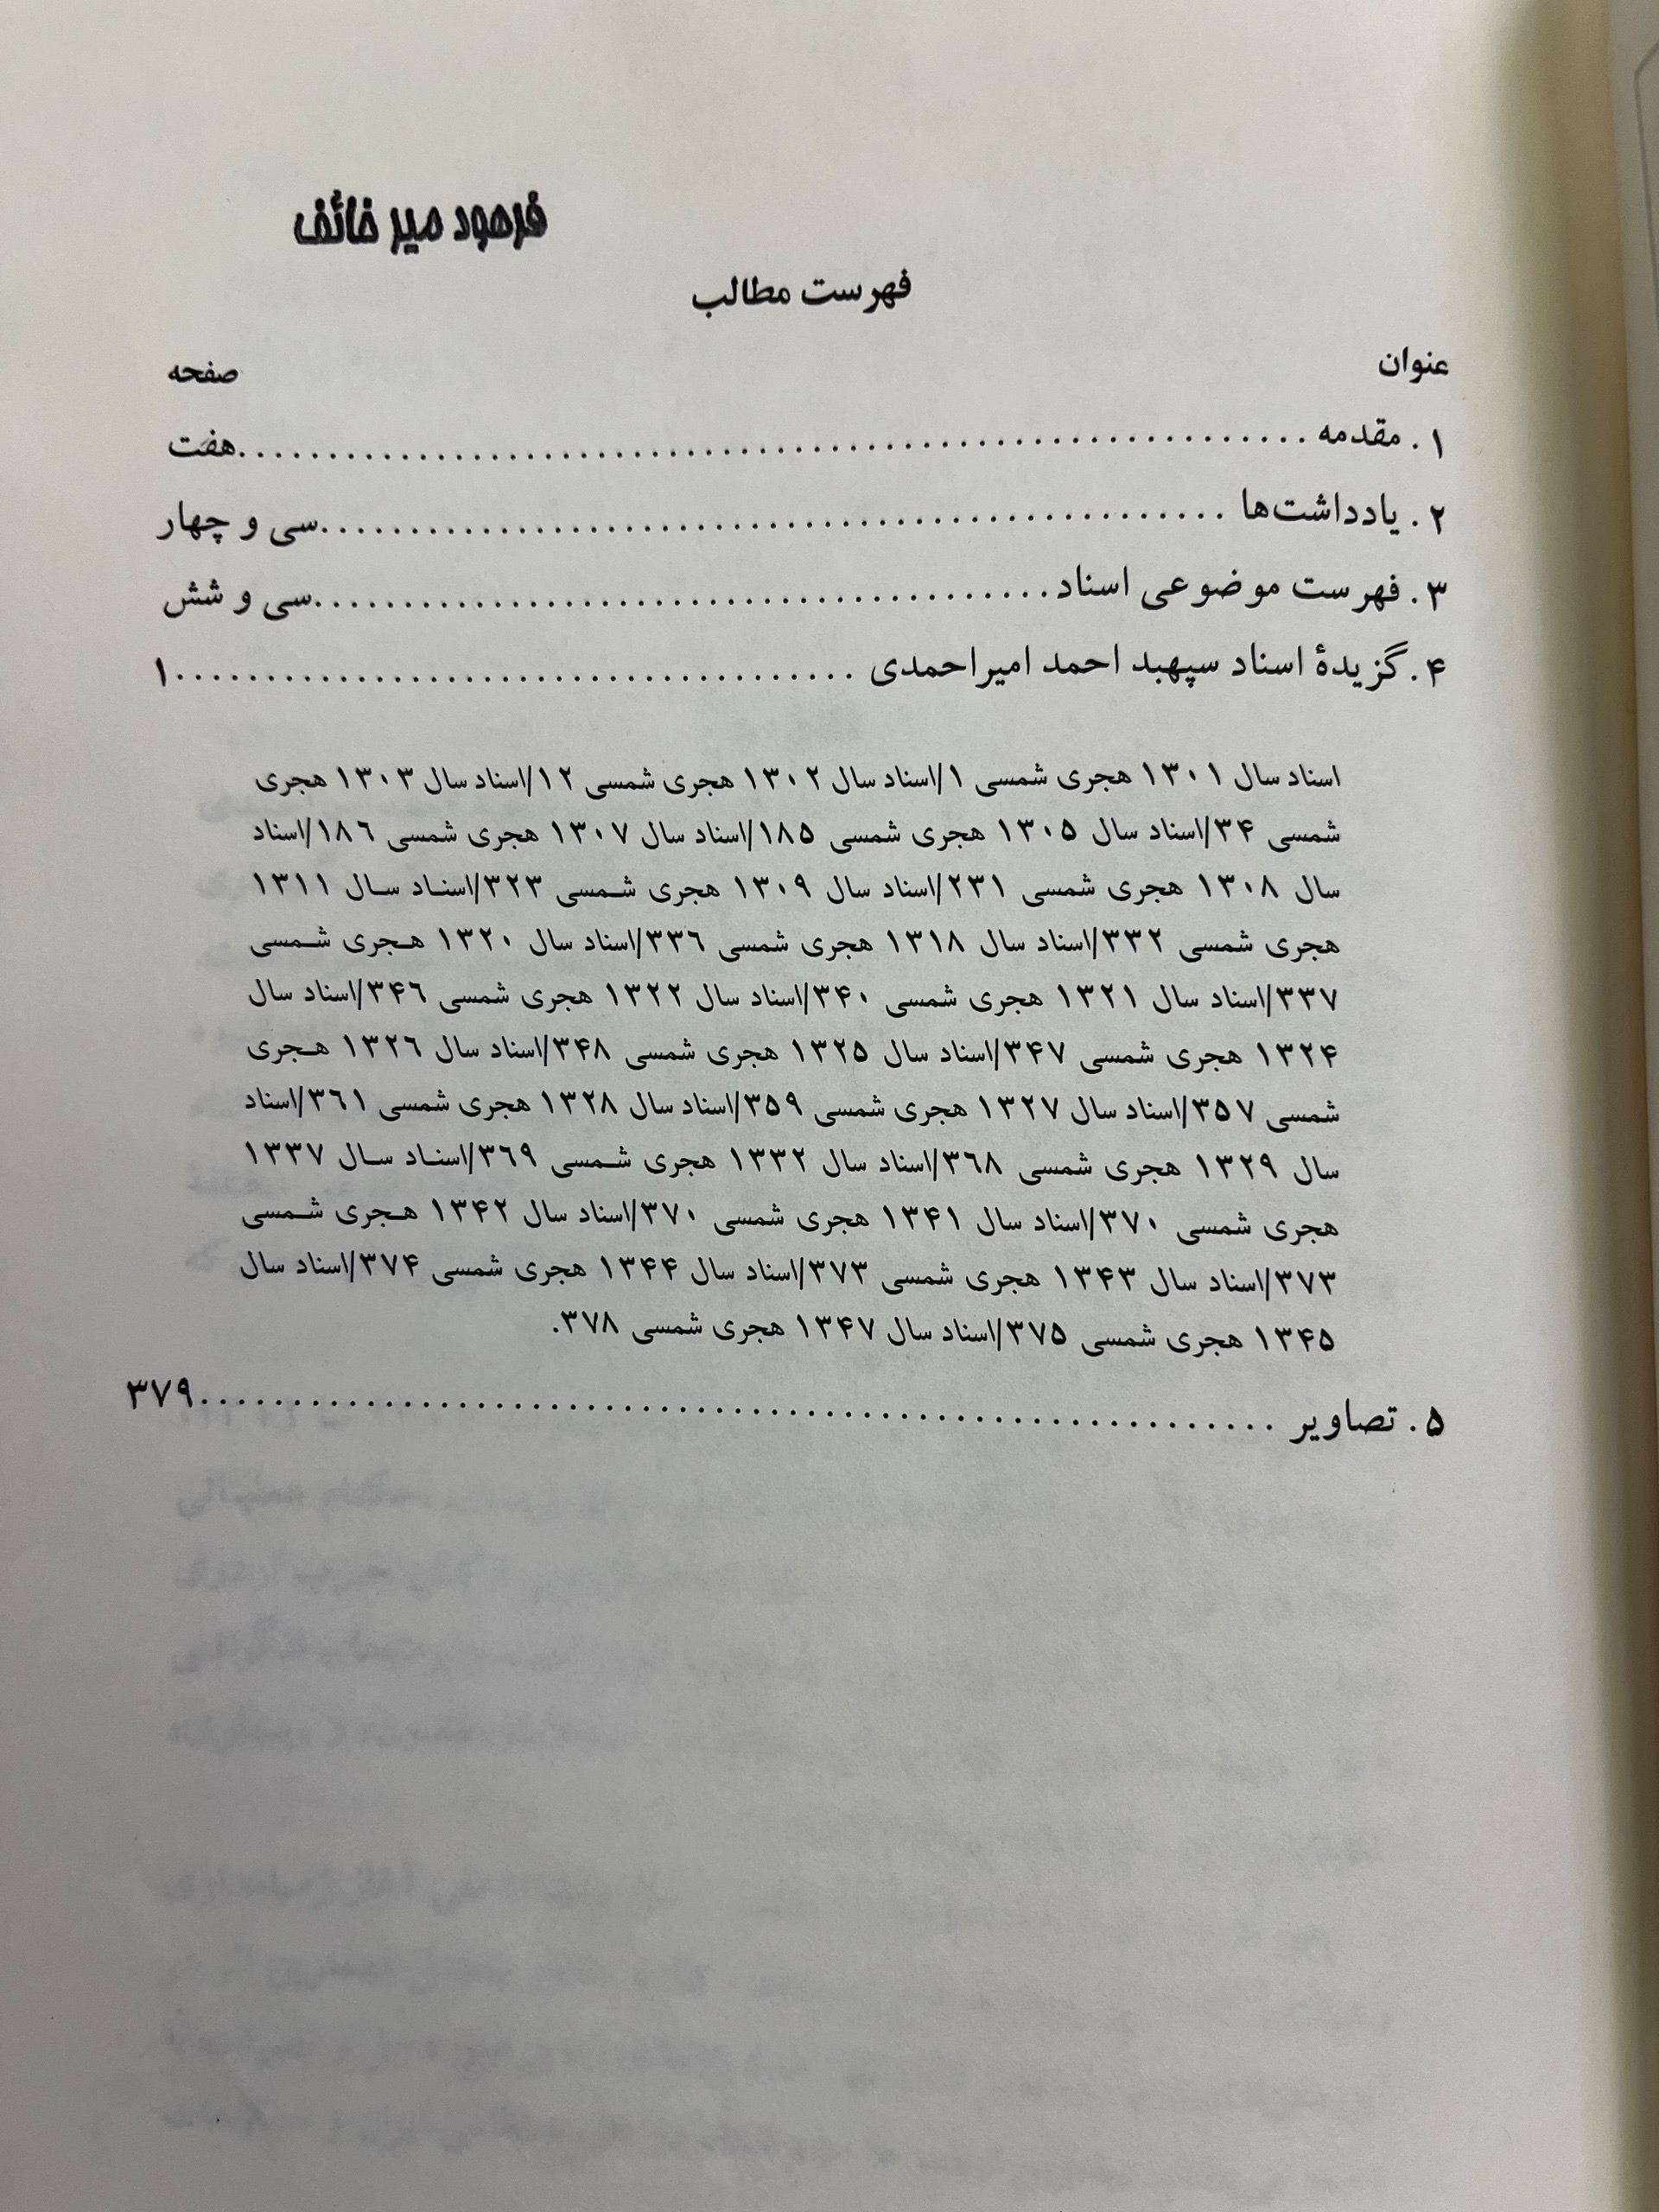 فرهود میر خائف
فهرست مطالب
عنوان صفحه
۱. مقدمه ............................................................هفت
۲. یادداشت‌ها ....................................................سی و چهار
۳. فهرست موضوعی اسناد..........................................سی و شش
۴. گزیدهٔ اسناد سپهبد احمد امیراحمدی .......................................۱
اسناد سال ۱۳۰۱ هجری شمسی ۱/اسناد سال ۱۳۰۲ هجری شمسی ۱۲/اسناد سال ۱۳۰۳ هجری
شمسی ۳۴/اسناد سال ۱۳۰۵ هجری شمسی ۱۸۵/اسناد سال ۱۳۰۷ هجری شمسی ۱۸۶/اسناد
سال ۱۳۰۸ هجری شمسی ۲۳۱/اسناد سال ۱۳۰۹ هجری شمسی ۳۲۳/اسناد سال ۱۳۱۱
هجری شمسی ۳۳۲/اسناد سال ۱۳۱۸ هجری شمسی ۳۳۶/اسناد سال ۱۳۲۰ هجری شمسی
۳۳۷/اسناد سال ۱۳۲۱ هجری شمسی ۳۴۰/اسناد سال ۱۳۲۲ هجری شمسی ۳۴۶/اسناد سال
۱۳۲۴ هجری شمسی ۳۴۷/اسناد سال ۱۳۲۵ هجری شمسی ۳۴۸/اسناد سال ۱۳۲۶ هجری
شمسی ۳۵۷/اسناد سال ۱۳۲۷ هجری شمسی ۳۵۹/اسناد سال ۱۳۲۸ هجری شمسی ۳۶۱/اسناد
سال ۱۳۲۹ هجری شمسی ۳۶۸/اسناد سال ۱۳۳۲ هجری شمسی ۳۶۹/اسناد سال ۱۳۳۷
هجری شمسی ۳۷۰/اسناد سال ۱۳۴۱ هجری شمسی ۳۷۰/اسناد سال ۱۳۴۲ هجری شمسی
۳۷۳/اسناد سال ۱۳۴۳ هجری شمسی ۳۷۳/اسناد سال ۱۳۴۴ هجری شمسی ۳۷۴/اسناد سال
۱۳۴۵ هجری شمسی ۳۷۵/اسناد سال ۱۳۴۷ هجری شمسی ۳۷۸.
۵. تصاویر ............................................................۳۷۹